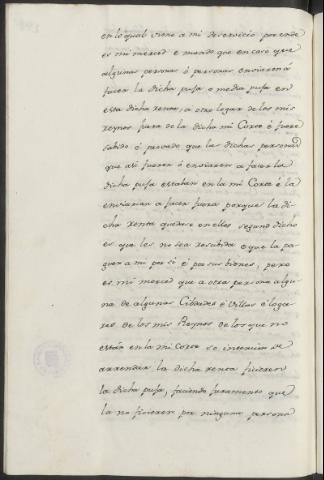 en lo qual viene a mi deservicio por ende
es mi merced e mando que en caso que
algunas personas ó personas enviaren á
facer la dicha puja o media puja en
esta dicha renta, a otro logar de los mis
reynos fuera de la dicha mi Corte é fuere
sabido é provado que la dichas personas
que asi fueren ó enviaren a facer la
dicha puja estaban en la mi Corte é la
enviaron a facer fuera porque la di-
cha renta quedase en ellos segund dicho
es que les no sea rescibida e que la pa-
guen a mi por sí é por sus bienes, pero
es mi merced que a otra persona algu-
na de algunas Cibdades é Villas é loga-
res de los mis Reynos de los que no
están en la mi Corte se
arrendar la dicha renta ficieren
la dicha puja, faciendo juramento que
la no ficieron por ninguna persona